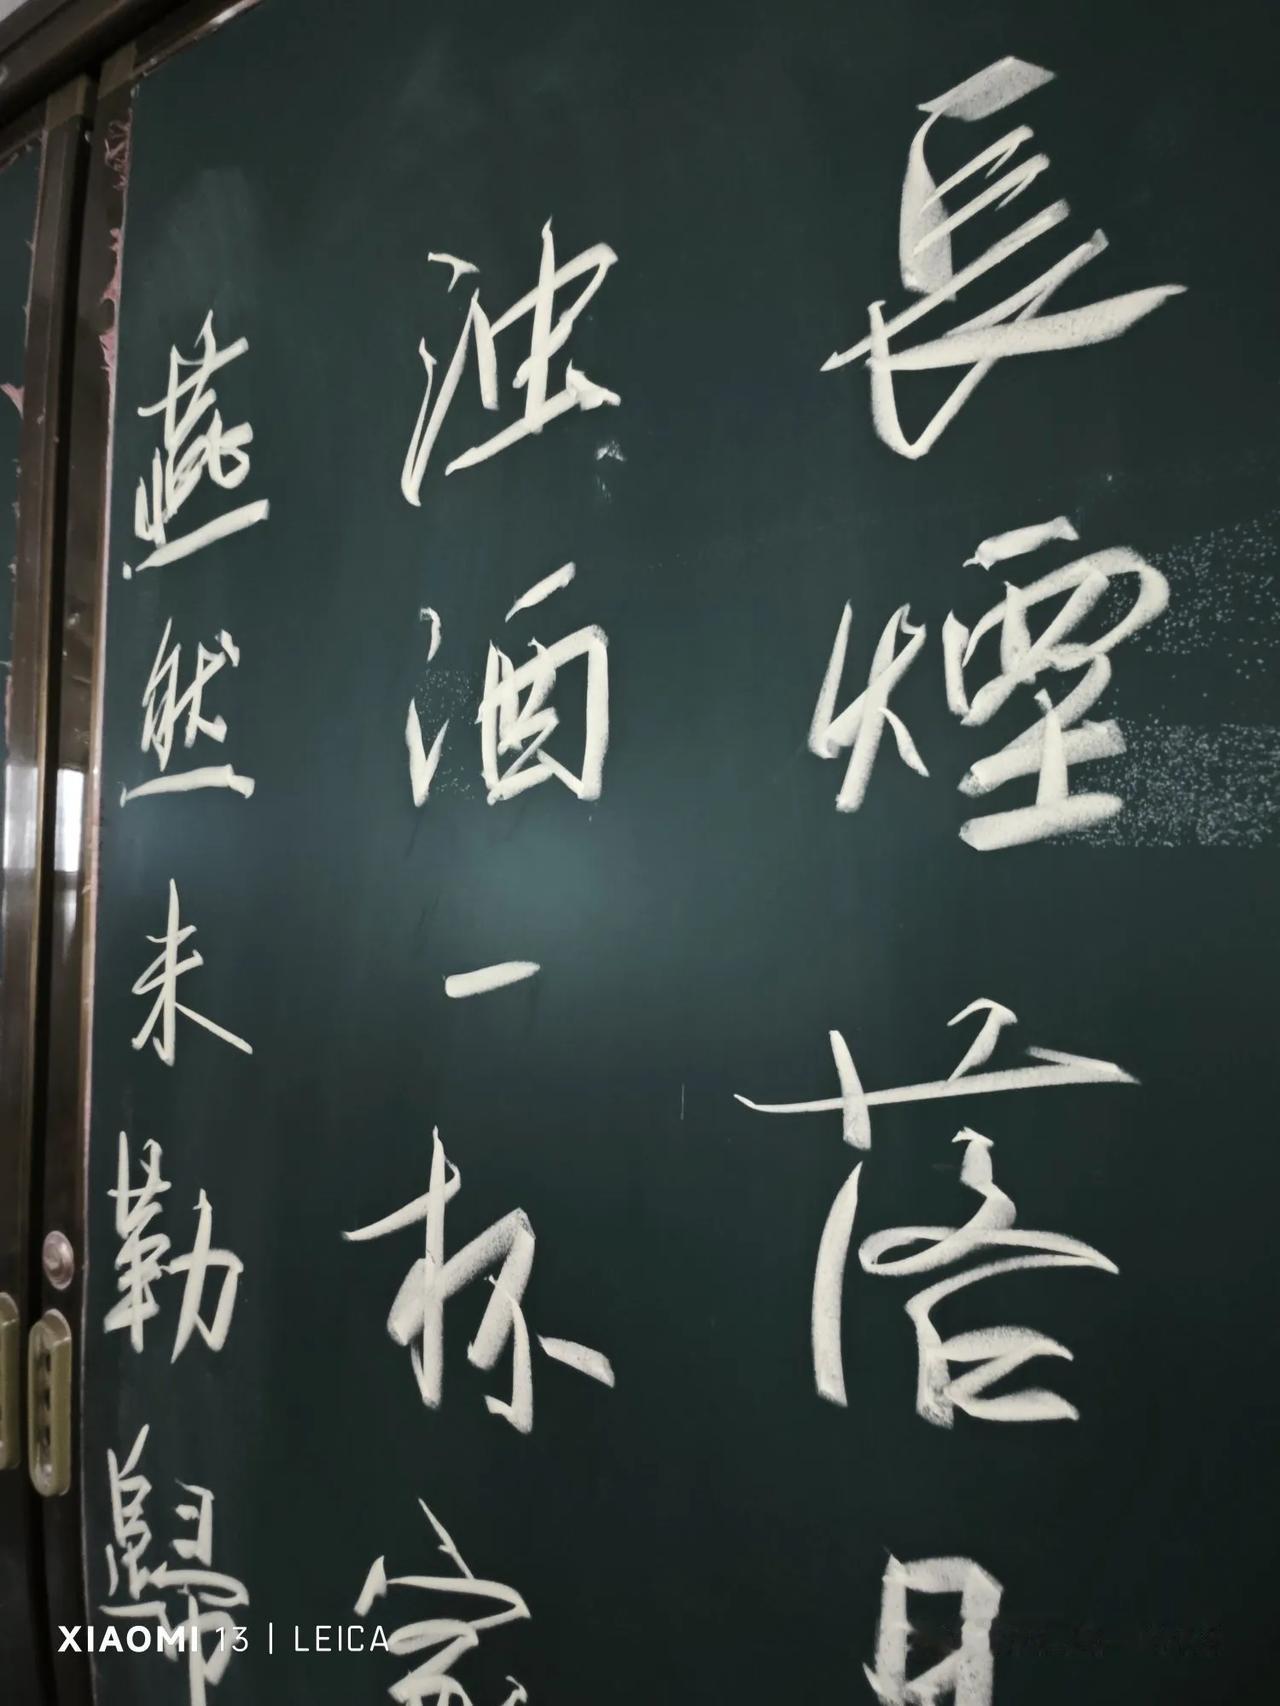 長煙落日
浊酒一杯家
燕然未勒歸
XIAOMI 13 | LEICA